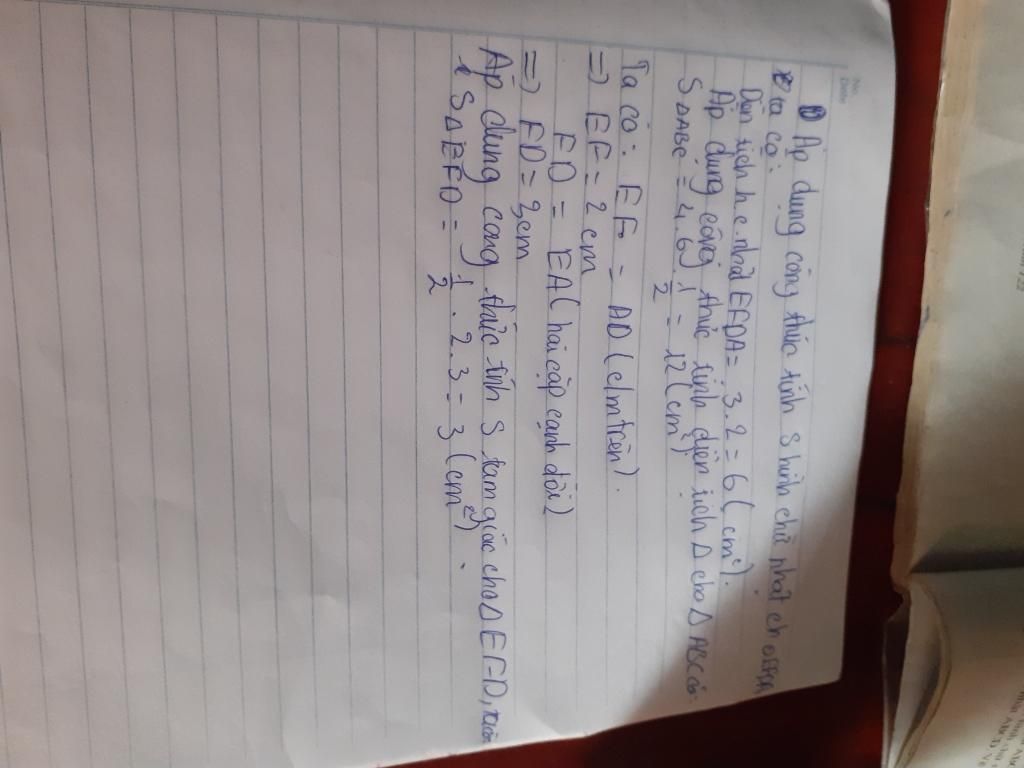 Áp dụng công thức tính S hình chữ nhật cho EFDA,
ta có:
Diện tích h.c.nhật EFDA = 3.2 = 6 (cm²).
Áp dụng công thức tính diện tích Δ cho Δ ABC có:
SΔABC = 4.6.1/2 = 12 (cm²)
Ta có: EF = AD (chm trên).
=> EF = 2 cm
FD = EA (hai cặp cạnh đối)
=> FD = 3 cm
Áp dụng cong thức tính S tam giác cho Δ EFD,
SΔEFD = 1/2 . 2.3 = 3 (cm²).